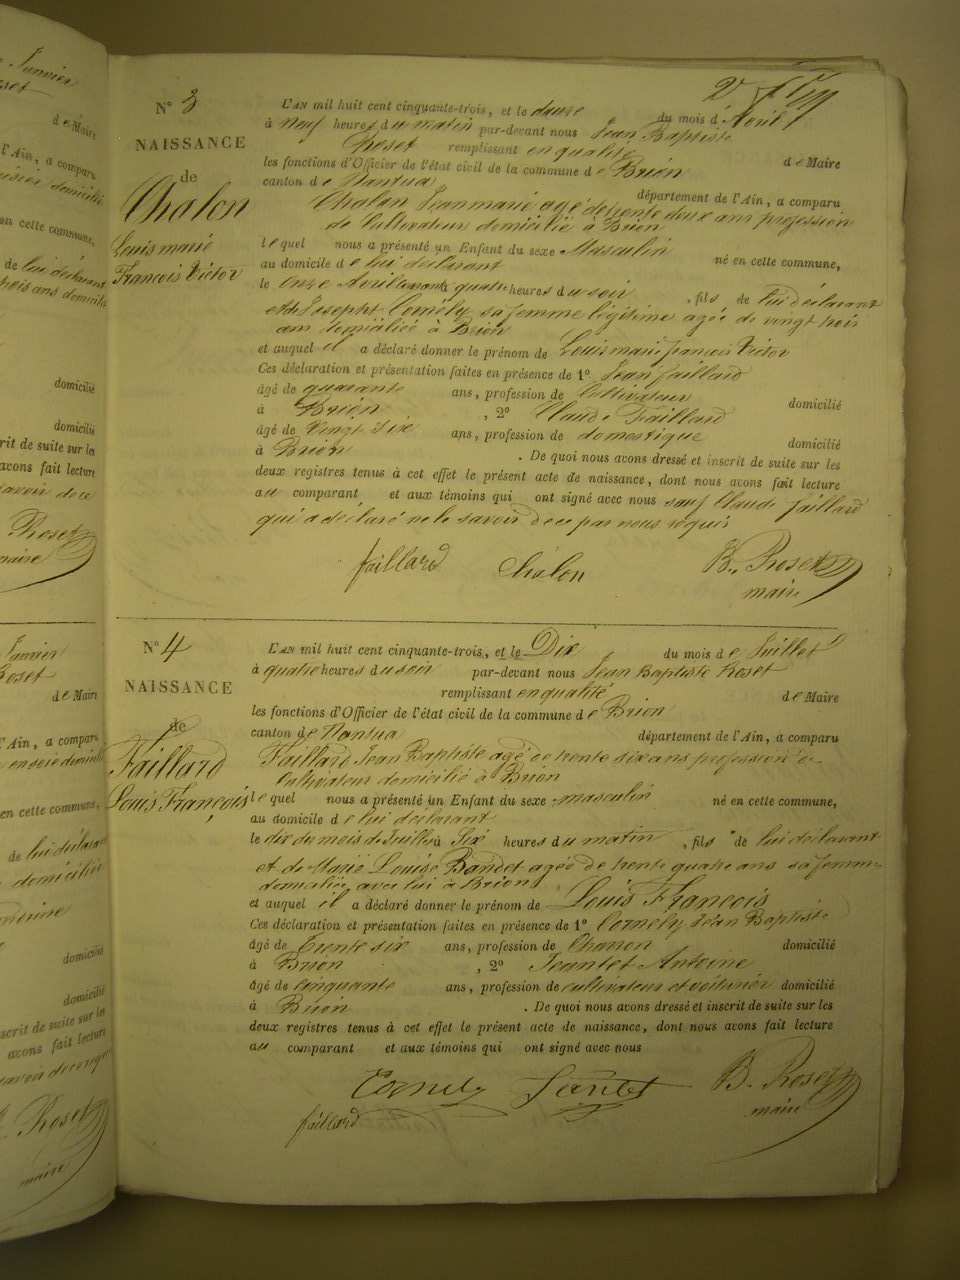 Janvier
de Maire
l'Ain, a comparu
en cette commune,
de lui déclarant
domicilié
domicilié
rit de suite sur les
avons fait lecture
savoir de ce
Roset
maire
Janvier
Roset
de Maire
l'Ain, a comparu
en cette commune,
de lui déclarant
domicilié
domicilié
domicilié
scrit de suite sur les
avons fait lecture
Roset
maire
N° 3
NAISSANCE
de
Chalon
Louis marie
François Victor
L'AN mil huit cent cinquante-trois, et le douze du mois d'Avril
à neuf heures du matin par-devant nous Jean Baptiste
Roset remplissant en qualité de Maire
les fonctions d'Officier de l'état civil de la commune de Brion
canton de Nantua département de l'Ain, a comparu
Chalon Jean marie agé de trente deux ans profession
de Cultivateur domicilié à Brion
lequel nous a présenté un Enfant du sexe Masculin né en cette commune,
au domicile de lui déclarant
le onze quatre heures du soir, fils de lui déclarant
et de Josephte Cornély sa femme légitime agée de vingt trois
ans domiciliée à Brion
et auquel il a déclaré donner le prénom de Louis marie françois Victor
Ces déclaration et présentation faites en présence de 1° Jean faillard
âgé de quarante ans, profession de Cultivateur domicilié
à Brion, 2° Claude Faillard
âgé de Vingt six ans, profession de domestique domicilié
à Brion. De quoi nous avons dressé et inscrit de suite sur les
deux registres tenus à cet effet le présent acte de naissance, dont nous avons fait lecture
au comparant et aux témoins qui ont signé avec nous sauf Claude faillard
qui a déclaré ne le savoir de ce par nous requis
faillard Chalon B. Roset
maire
N° 4
NAISSANCE
de
Faillard
Louis François
L'AN mil huit cent cinquante-trois, et le Dix du mois de Juillet
à quatre heures du soir par-devant nous Jean Baptiste Roset
remplissant en qualité de Maire
les fonctions d'Officier de l'état civil de la commune de Brion
canton de Nantua département de l'Ain, a comparu
Faillard Jean Baptiste agé de trente six ans profession de
Cultivateur domicilié à Brion
lequel nous a présenté un Enfant du sexe masculin né en cette commune,
au domicile de lui déclarant
le dix du mois de Juillet à Six heures du matin, fils de lui déclarant
et de Marie Louise Bandet agée de trente quatre ans sa femme
domiciliée avec lui à Brion
et auquel il a déclaré donner le prénom de Louis François
Ces déclaration et présentation faites en présence de 1° Cornely Jean Baptiste
âgé de Trente six ans, profession de Charron domicilié
à Brion, 2° Jeantet Antoine
âgé de cinquante ans, profession de cultivateur et voiturier domicilié
à Brion. De quoi nous avons dressé et inscrit de suite sur les
deux registres tenus à cet effet le présent acte de naissance, dont nous avons fait lecture
au comparant et aux témoins qui ont signé avec nous
Cornely Jantet B. Roset
faillard maire